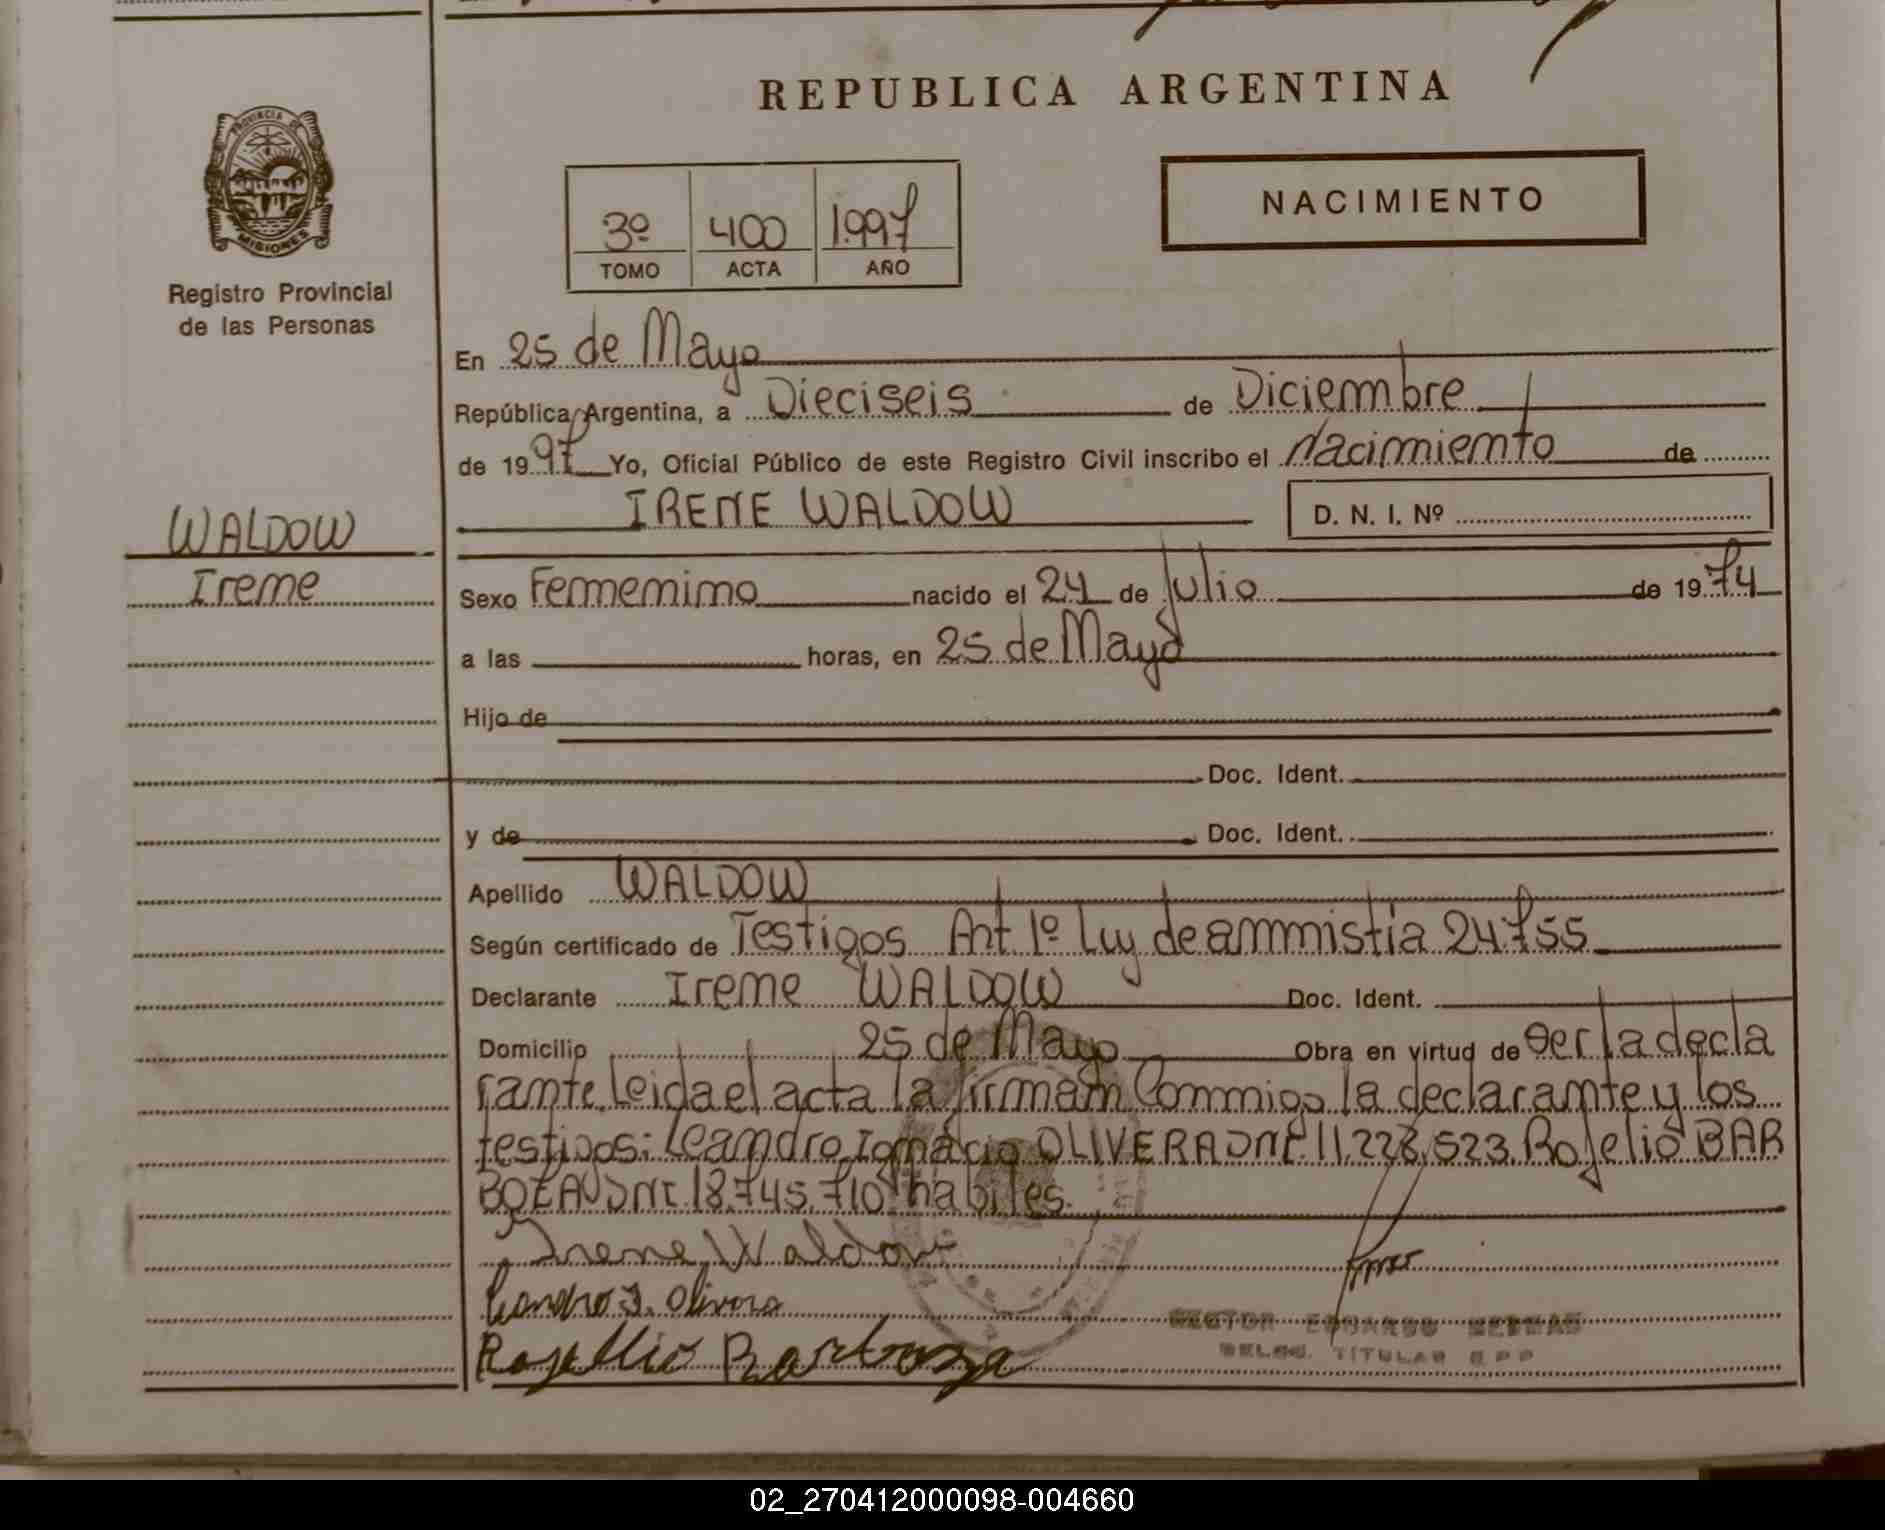 REPUBLICA ARGENTINA
PROVINCIA DE
MISIONES
Registro Provincial
de las Personas
NACIMIENTO
3º 400 1.997
TOMO ACTA AÑO
En 25 de Mayo
República Argentina, a Dieciseis de Diciembre
de 1997 Yo, Oficial Público de este Registro Civil inscribo el Nacimiento de
IRENE WALDOW D. N. I. Nº
WALDOW
Irene
Sexo Femenino nacido el 24 de Julio de 1974
a las horas, en 25 de Mayo
Hijo de
Doc. Ident.
y de Doc. Ident.
Apellido WALDOW
Según certificado de Testigos Art 1º Ley de ammistia 24.755
Declarante Irene WALDOW Doc. Ident.
Domicilio 25 de Mayo Obra en virtud de ser la decla
rante. Leida el acta la firman Conmigo la declarante y los
testigos: Leandro Ignacio OLIVERA DNI. 11.228.523. Rojelio BAR
BOZA DNI. 18.745.710 habiles.
Irene Waldow
Leandro I. Olivera
Rogellio Barboza
HECTOR EDUARDO
DELEG. TITULAR RPP
02_270412000098-004660